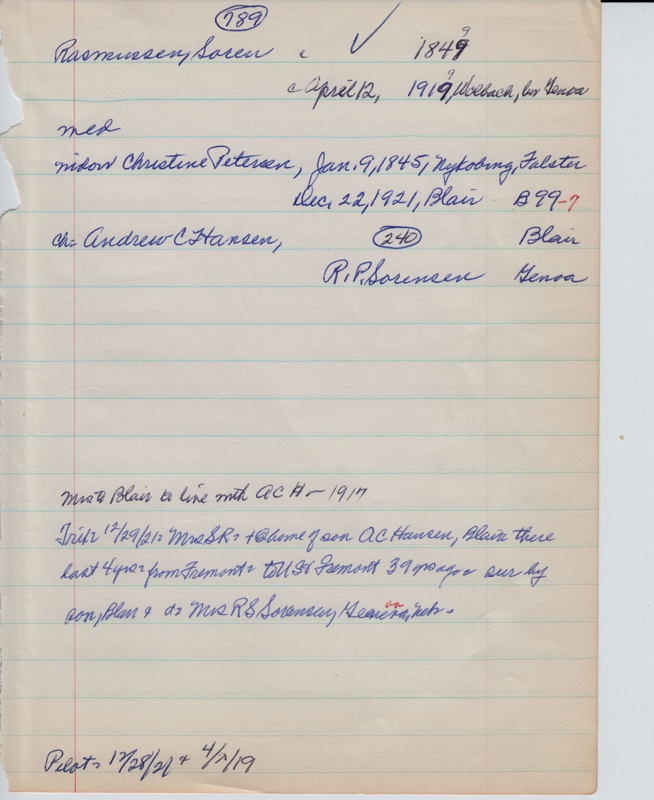 789
Rasmussen, Soren c ✓ 1849
c April 12, 1919, Wolbach, bur Genoa
med
widow Christine Petersen, Jan. 9, 1845, Nykobing, Falster
Dec. 22, 1921, Blair B99-7
ch= Andrew C Hansen, 240 Blair
R. P. Sorensen Genoa
Mrs to Blair to live with A C H - 1917
Trib= 12/29/21= Mrs SR= + @ home of son A C Hansen, Blair there
last 4 yrs= from Fremont= to US & Fremont 39 yrs ago sur by
son, Blair + d= Mrs R S Sorensen, Neb.
Pilot= 12/28/21 + 4/ /19